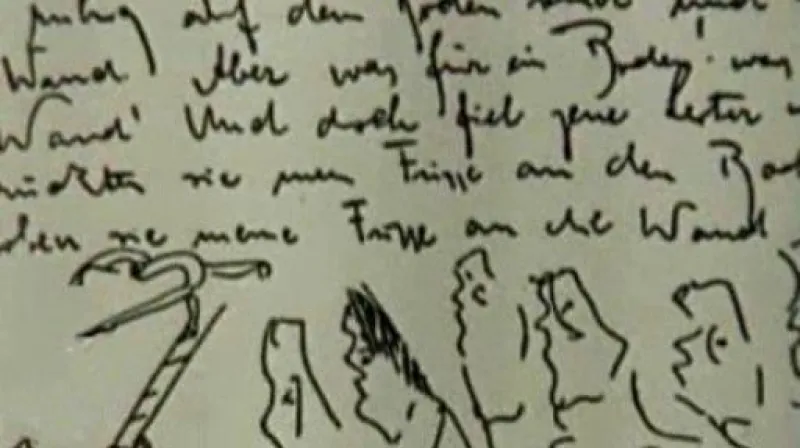 ruhig auf dem Boden stand und
Wand Aber was für ein Boden! was
Wand! Und doch fiel jene Leiter
drückten sie meine Füsse an den Bod
hoben sie meine Füsse an die Wand